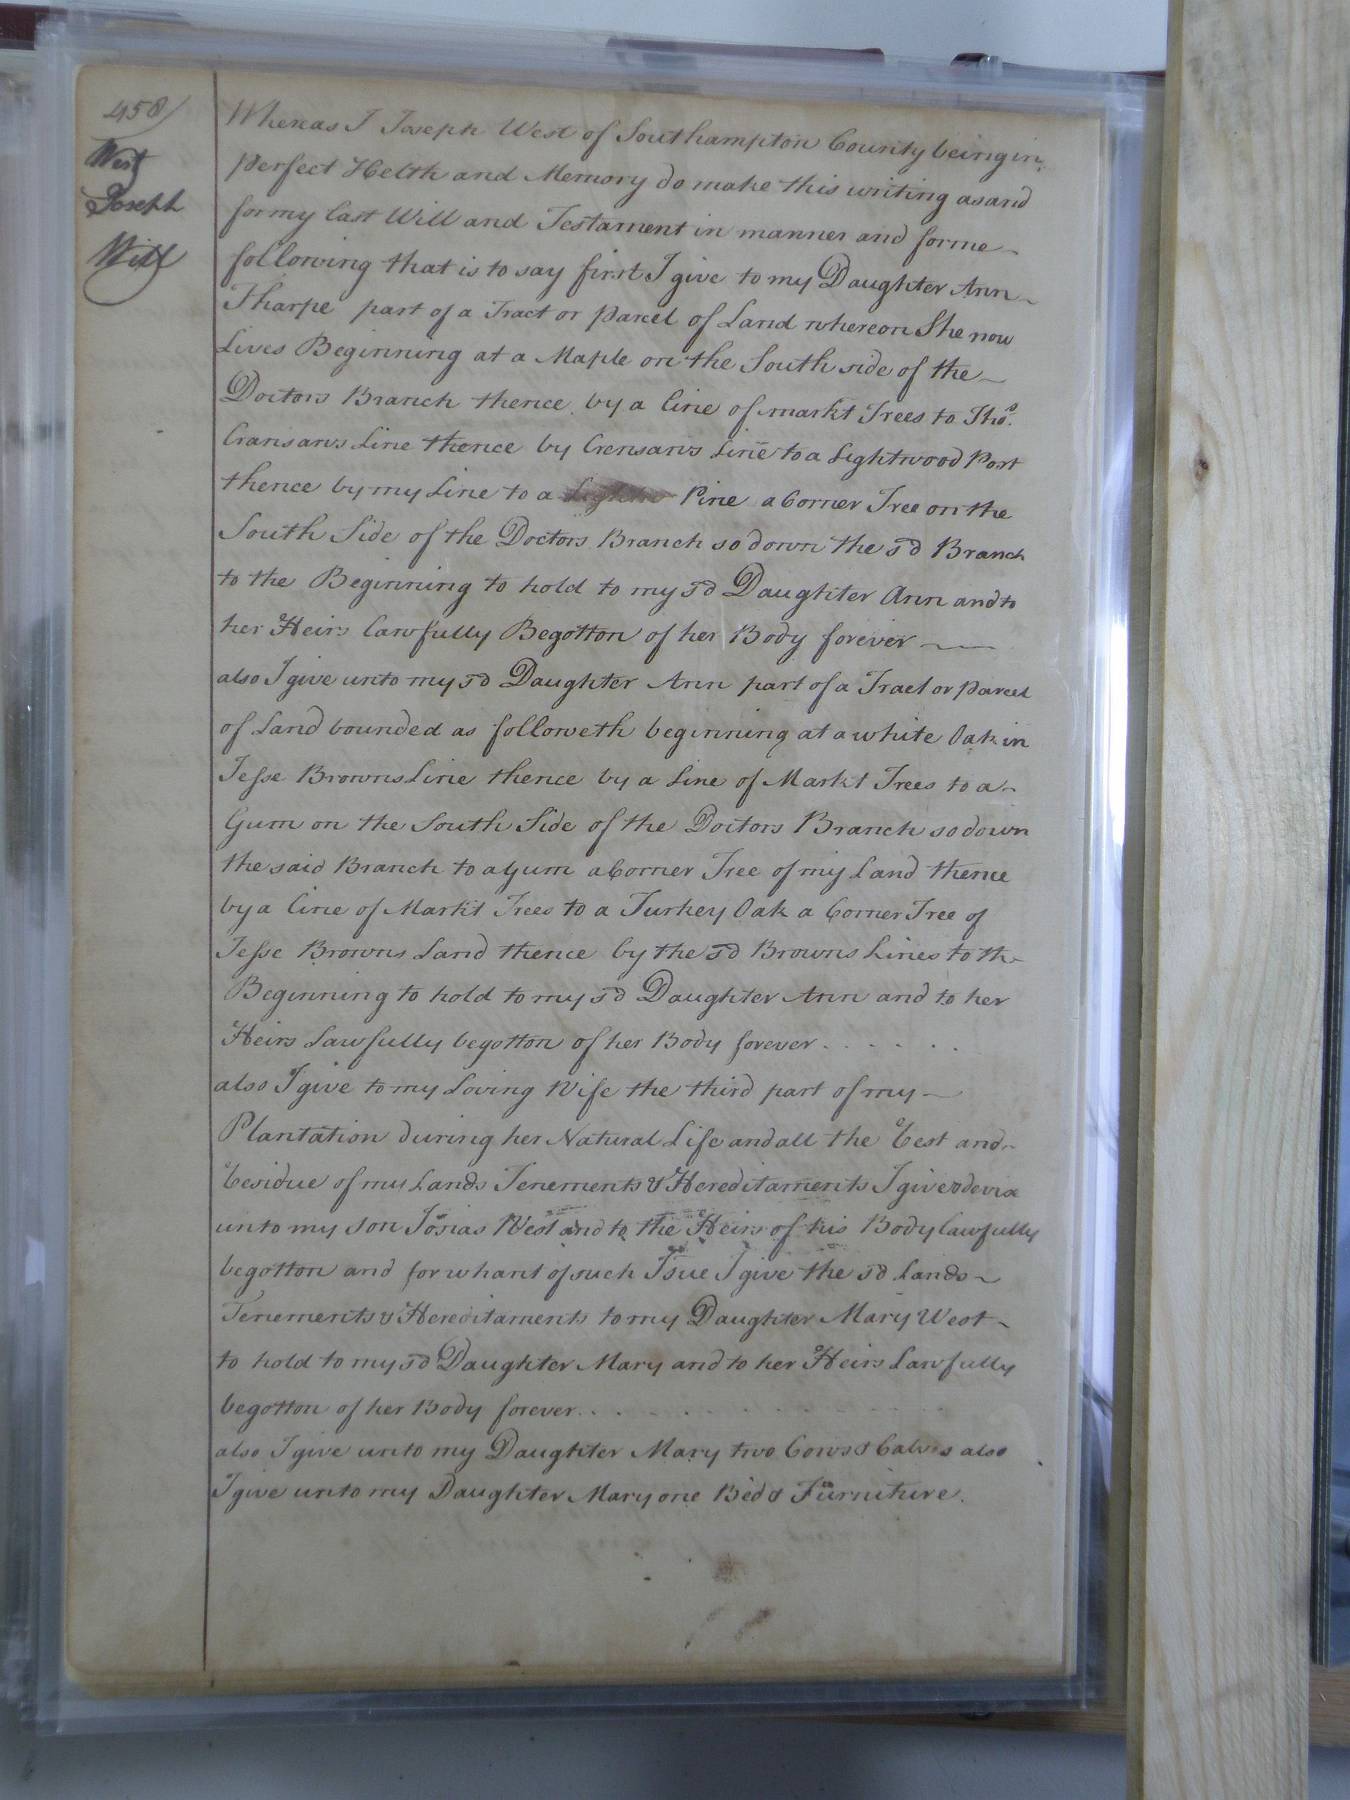 458
West
Joseph
Will
Whereas I Joseph West of Southampton County being in
perfect Helth and Memory do make this writing as and
for my last Will and Testament in manner and forme
following that is to say first I give to my Daughter Ann
Tharpe part of a Tract or parcel of Land whereon She now
Lives Beginning at a Maple on the South side of the
Doctors Branch thence by a line of markt Trees to Thos.
Cransaws Line thence by Crensaws Line to a Lightwood Post
thence by my Line to a Pine a Corner Tree on the
South Side of the Doctors Branch so down the sd Branch
to the Beginning to hold to my sd Daughter Ann and to
her Heirs lawfully Begotton of her Body forever
also I give unto my sd Daughter Ann part of a Tract or parcel
of Land bounded as followeth beginning at a white Oak in
Jesse Browns Line thence by a Line of Markt Trees to a
Gum on the South Side of the Doctors Branch so down
the said Branch to a Gum a Corner Tree of my Land thence
by a line of Markt Trees to a Turkey Oak a Corner Tree of
Jesse Browns Land thence by the sd Browns Lines to the
Beginning to hold to my sd Daughter Ann and to her
Heirs Lawfully begotton of her Body forever . . . . . .
also I give to my Loving Wife the third part of my
Plantation during her Natural Life and all the rest and
residue of my Lands Tenements & Hereditaments I give & devise
unto my son Josias West and to the Heirs of his Body lawfully
begotton and for whant of such Isue I give the sd Lands
Tenements & Hereditaments to my Daughter Mary West
to hold to my sd Daughter Mary and to her Heirs Lawfully
begotton of her Body forever. . . . . . . . . . .
also I give unto my Daughter Mary two Cows & Calves also
I give unto my Daughter Mary one Bed & Furniture.